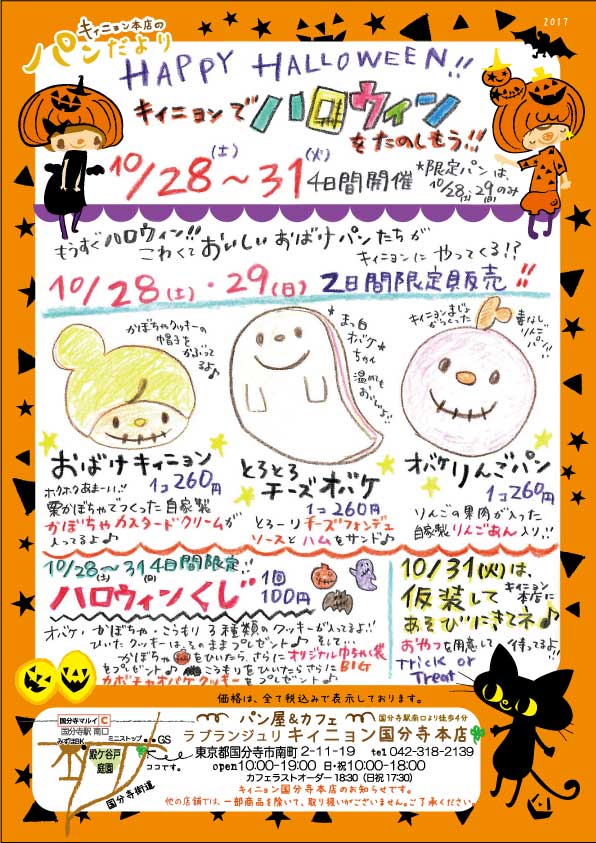 2017
キィニョン本店の
パンだより
HAPPY HALLOWEEN!!
キィニョンで ハロウィン
をたのしもう!!!
10/28(土)〜31(火) 4日間開催
*限定パンは、
10/28(土)・29(日)のみ
もうすぐハロウィン!! こわくておいしいおばけパンたちが
キィニョンに やってくる!?
10/28(土)・29(日) 2日間限定販売!!
かぼちゃクッキーの
帽子を
かぶってるよ♪
まっ白
オバケ
ちゃん
温めても
おいしいよ!!
キィニョンまじょが
つくった
毒なし
りんご
パン!!
おばけキィニョン
1コ260円
ホクホクあまーい!!
栗かぼちゃでつくった自家製
かぼちゃカスタードクリームが
入ってるよ♪
とろとろ
チーズオバケ
1コ260円
とろーりチーズフォンデュ
ソースとハムをサンド♪
オバケりんごパン
1コ260円
りんごの果肉が入った
自家製りんごあん入り!!
10/28(土)〜31 4日間限定!!
ハロウィンくじ
1回
100円
オバケ・かぼちゃ・こうもり 3種類のクッキーが入ってるよ!!
ひいたクッキーは、そのままプレゼント♪ そして…
かぼちゃをひいたら、さらにオリジナルゆうれい袋
をプレゼント♪ こうもりをひいたらさらにBIG
カボチャオバケクッキーをプレゼント♪
10/31(火)は、
仮装して
キィニョン
本店に
あそびにきてネ♪
おやつを用意して待ってるよ!!
Trick or
Treat
価格は、全て税込みで表示しております。
国分寺マルイ C
国分寺駅 南口
みずほBK
ミニストップ
GS
殿ケ谷戸
庭園
ココです。
国分寺街道
パン屋&カフェ
国分寺駅南口より徒歩4分
ラブランジュリ キィニョン国分寺本店
東京都国分寺市南町 2-11-19 tel 042-318-2139
open10:00-19:00 日・祝10:00-18:00
カフェラストオーダー 18:30 (日祝 17:30)
キィニョン国分寺本店のお知らせです。
他の店舗では、一部商品を除いて、取り扱いがございません。ご了承ください。